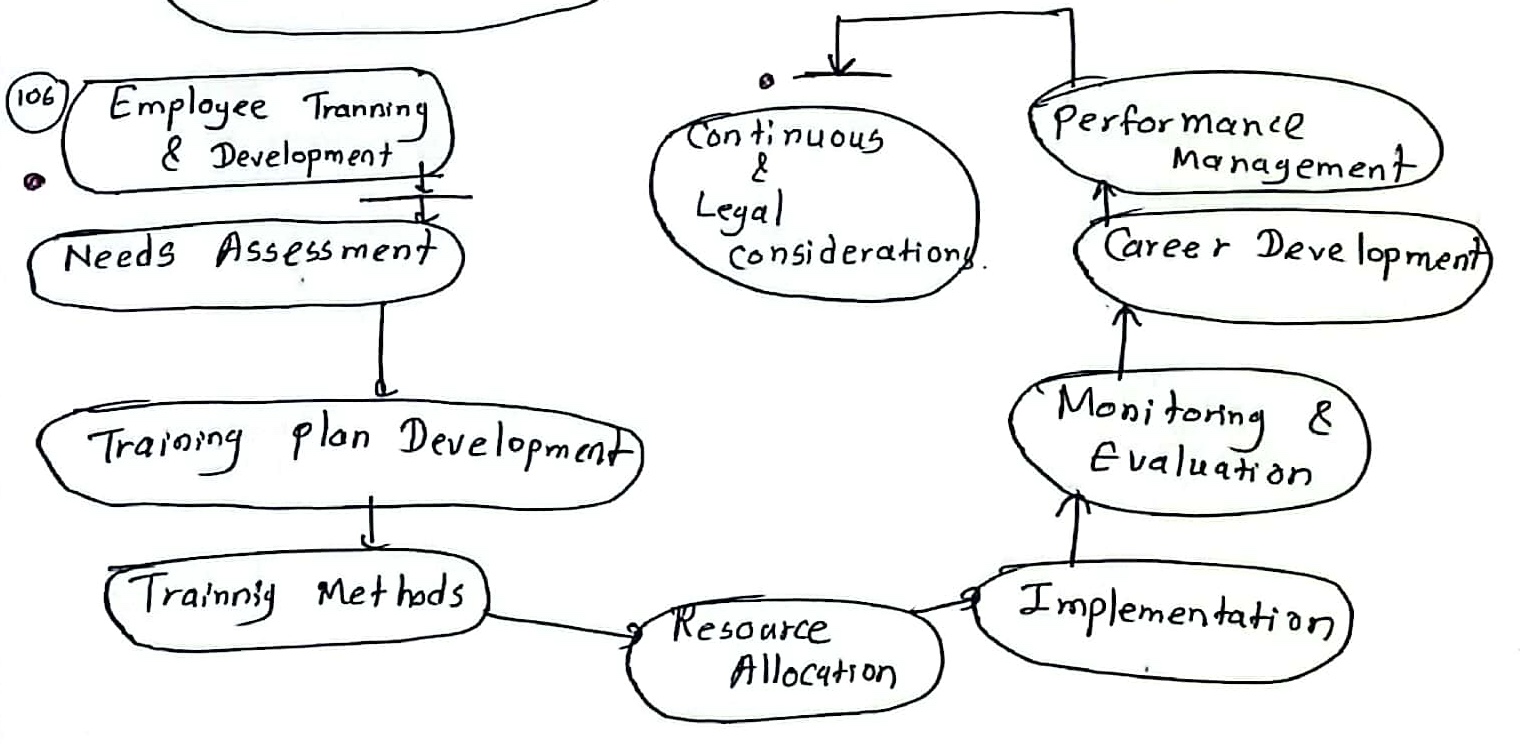 106
Employee Tranning
& Development
Needs Assessment
Training plan Development
Trainnig Methods
Resource
Allocation
Implementation
Monitoring &
Evaluation
Career Development
Performance
Management
Continuous
&
Legal
Considerations.